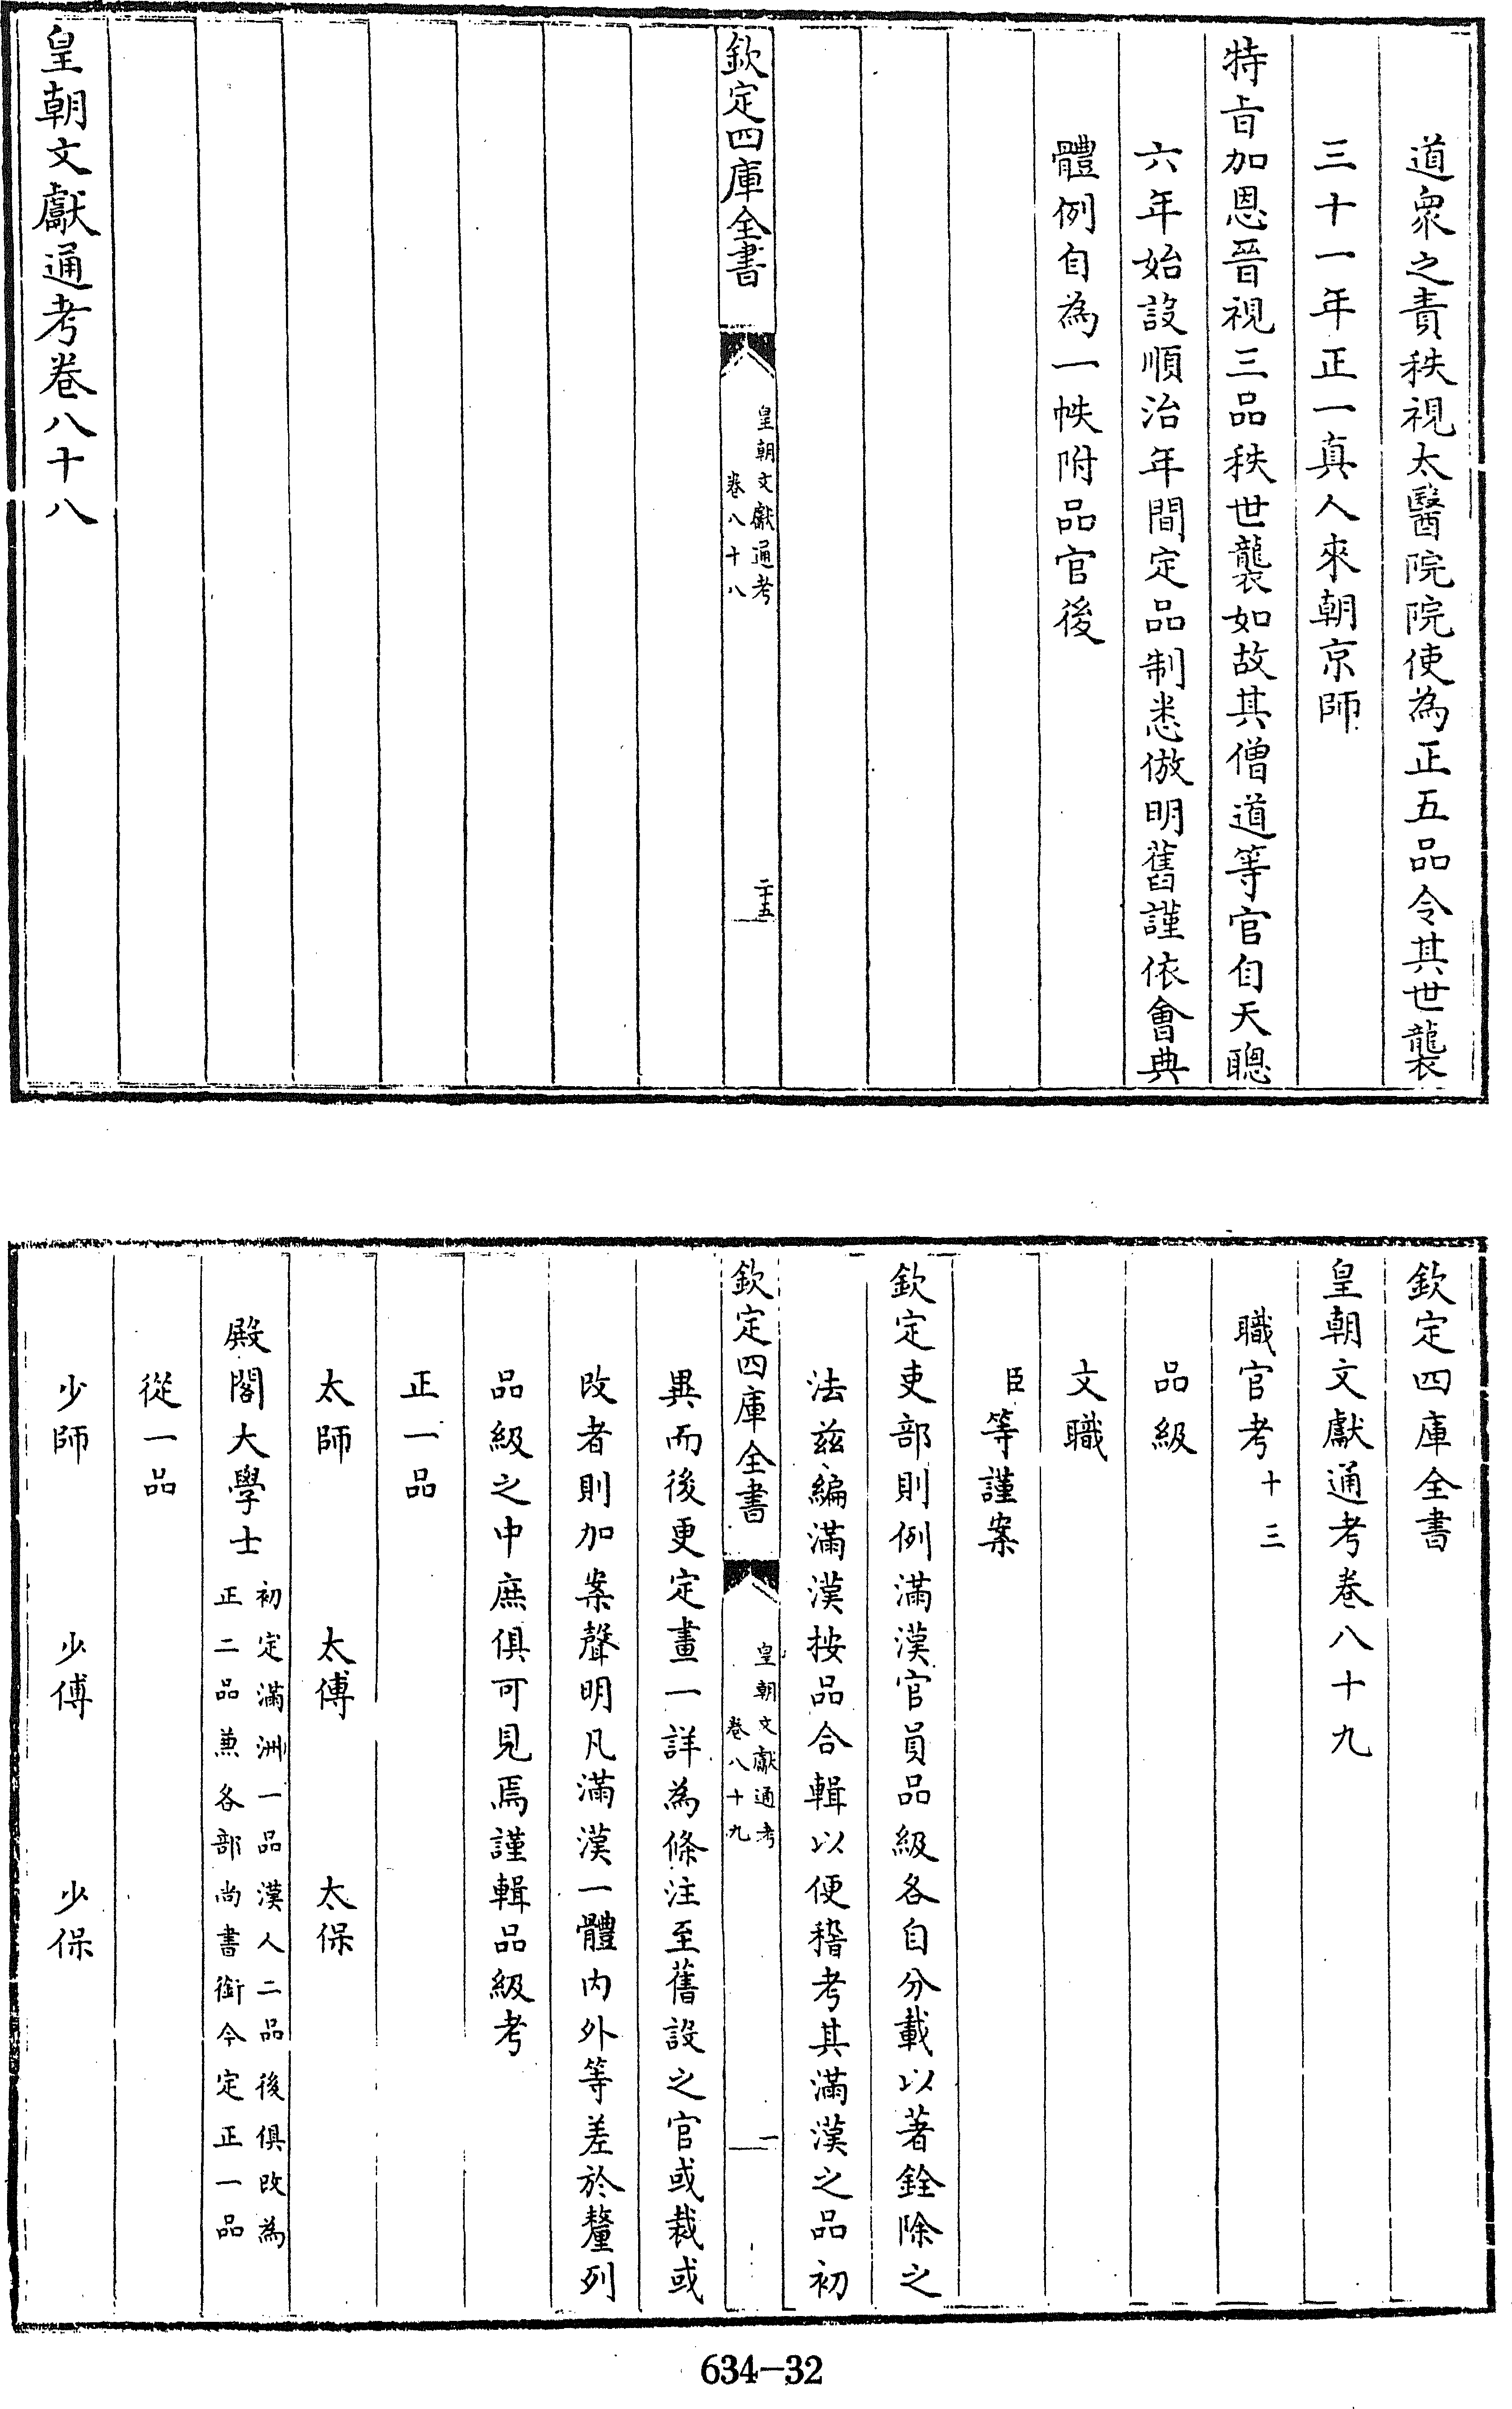 道衆之責秩視太醫院院使為正五品令其世襲
三十一年正一真人來朝京師
特旨加恩晉視三品秩世襲如故其僧道等官自天聰
六年始設順治年間定品制悉倣明舊謹依會典
體例自為一帙附品官後
欽定四庫全書
皇朝文獻通考
卷八十八
二十五
皇朝文獻通考卷八十八
欽定四庫全書
皇朝文獻通考卷八十九
職官考十三
品級
文職
臣等謹案
欽定吏部則例滿漢官員品級各自分載以著銓除之
法兹編滿漢按品合輯以便稽考其滿漢之品初
欽定四庫全書
皇朝文獻通考
卷八十九
一
異而後更定畫一詳為條注至舊設之官或裁或
改者則加案聲明凡滿漢一體內外等差於釐列
品級之中庶俱可見焉謹輯品級考
正一品
太師 太傅 太保
殿閣大學士初定滿洲一品漢人二品後俱改為
正二品兼各部尚書銜今定正一品
從一品
少師 少傅 少保
634-32